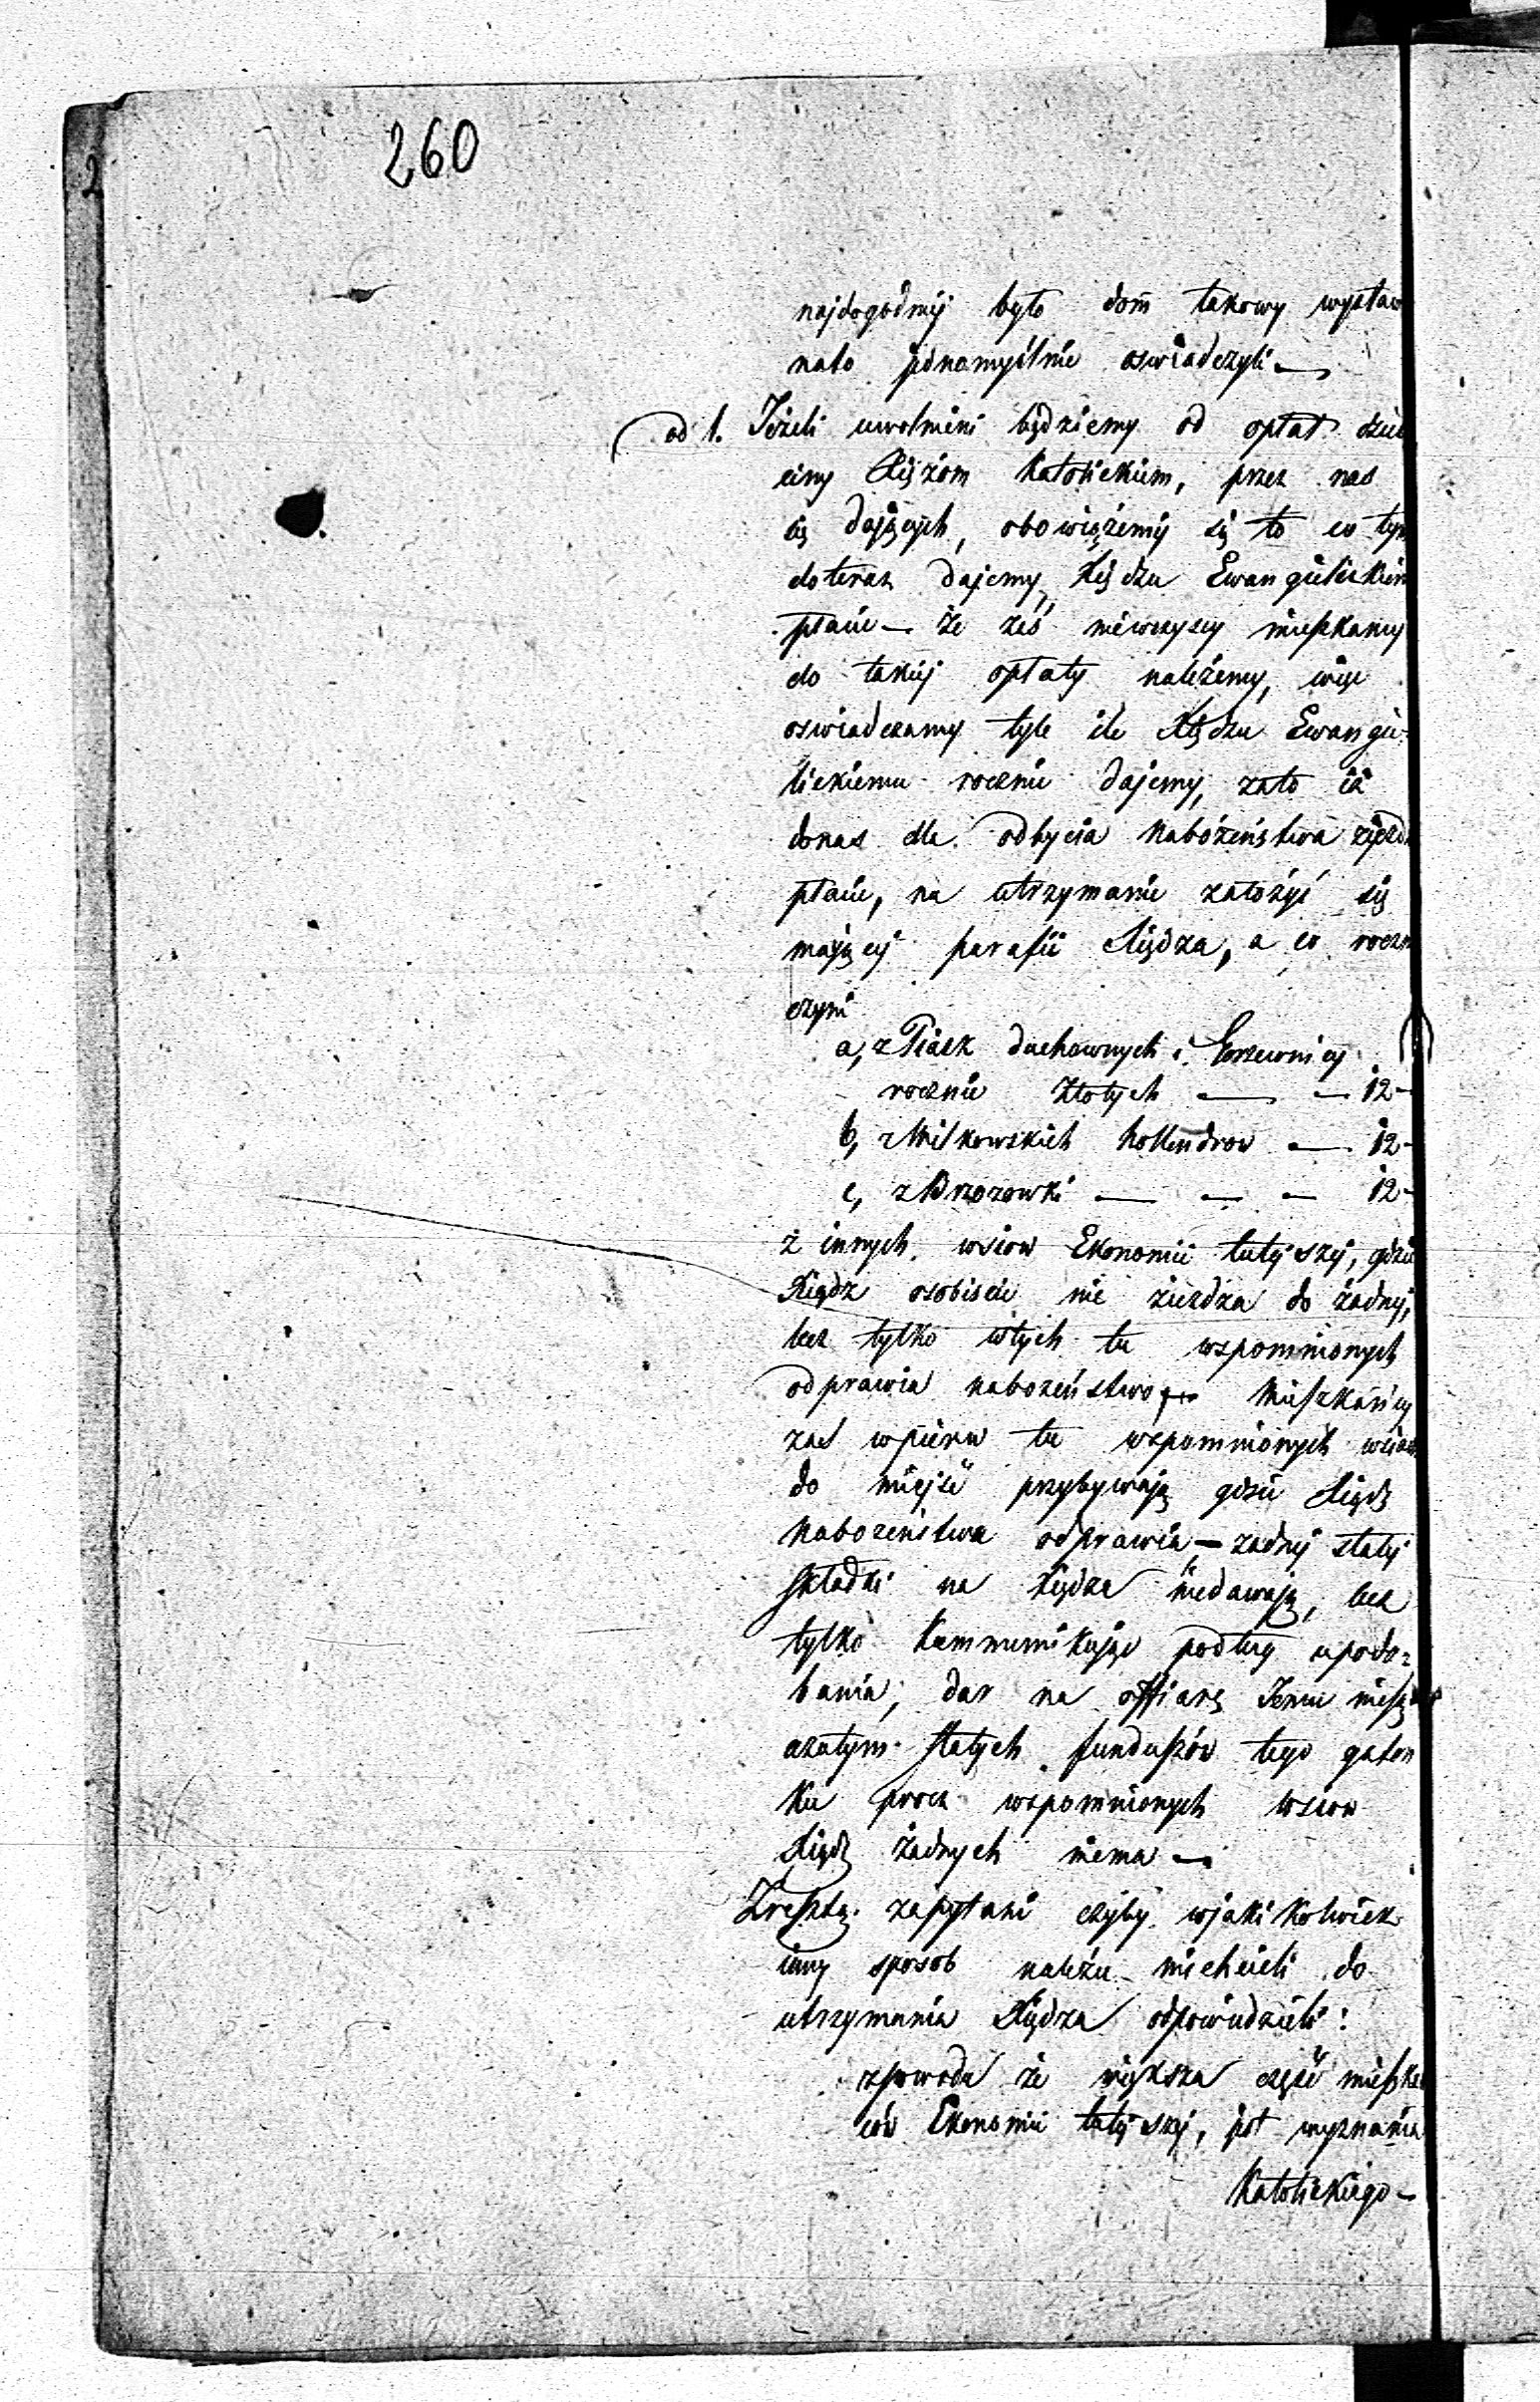 260
2
najdogodnij było dom takowy wystaw
nato jednomyślnie oswiadczyli —
ad 1. Jeżeli uwolnieni będziemy od opłat dzie
ciny Xiężom Katolickim, przez nas
się dających, obowiężemy się to co tym
doteraz dajemy, Xiędzu Ewangielickim
płacić — że zaś niewszyscy mieszkancy
do takiej opłaty należemy, więc
oswiadczamy tyle ile Xiędzu Ewangie-
lickiemu rocznie dajemy, zato iż
donas dla odbycia Nabożeństwa zjeżd
płacić, na utrzymanie założyć się
mającej parafii Xiędza, a co roczn
czyni
a, z Piask duchownych i
rocznie Złotych — — 12 —
b, z Wilkowskich hollendrow — 12 —
c, z Brzozowki — — — 12 —
z innych wsiow Ekonomii tutejszej, gdzie
Xiądz osobiscie nie zieżdza do żadnej,
lecz tylko wtych tu wspomnionych
odprawia nabozeństwo — Mieszkańcy
zaś wpierw tu wspomnionych wsiow
do miejsc przybywają gdzie Xiądz
Nabozeństwa odprawia — zadnej stałej
składki na Xiędza niedawają, lecz
tylko kommunikując podług upodo-
bania, dar na offiarę Jemu
azatym stałych funduszów tego gatun
ku procz wspomnionych wsiow
Xiądz żadnych niema —
Zresztą zapytani czyby wjaki kolwiek
inny sposob należeć niechcieli do
utrzymania Xiędza odpowiedzieli:
zpowodu że większa część mieszkań
ców Ekonomii tutejszej, jest wyznania
Katolickiego —